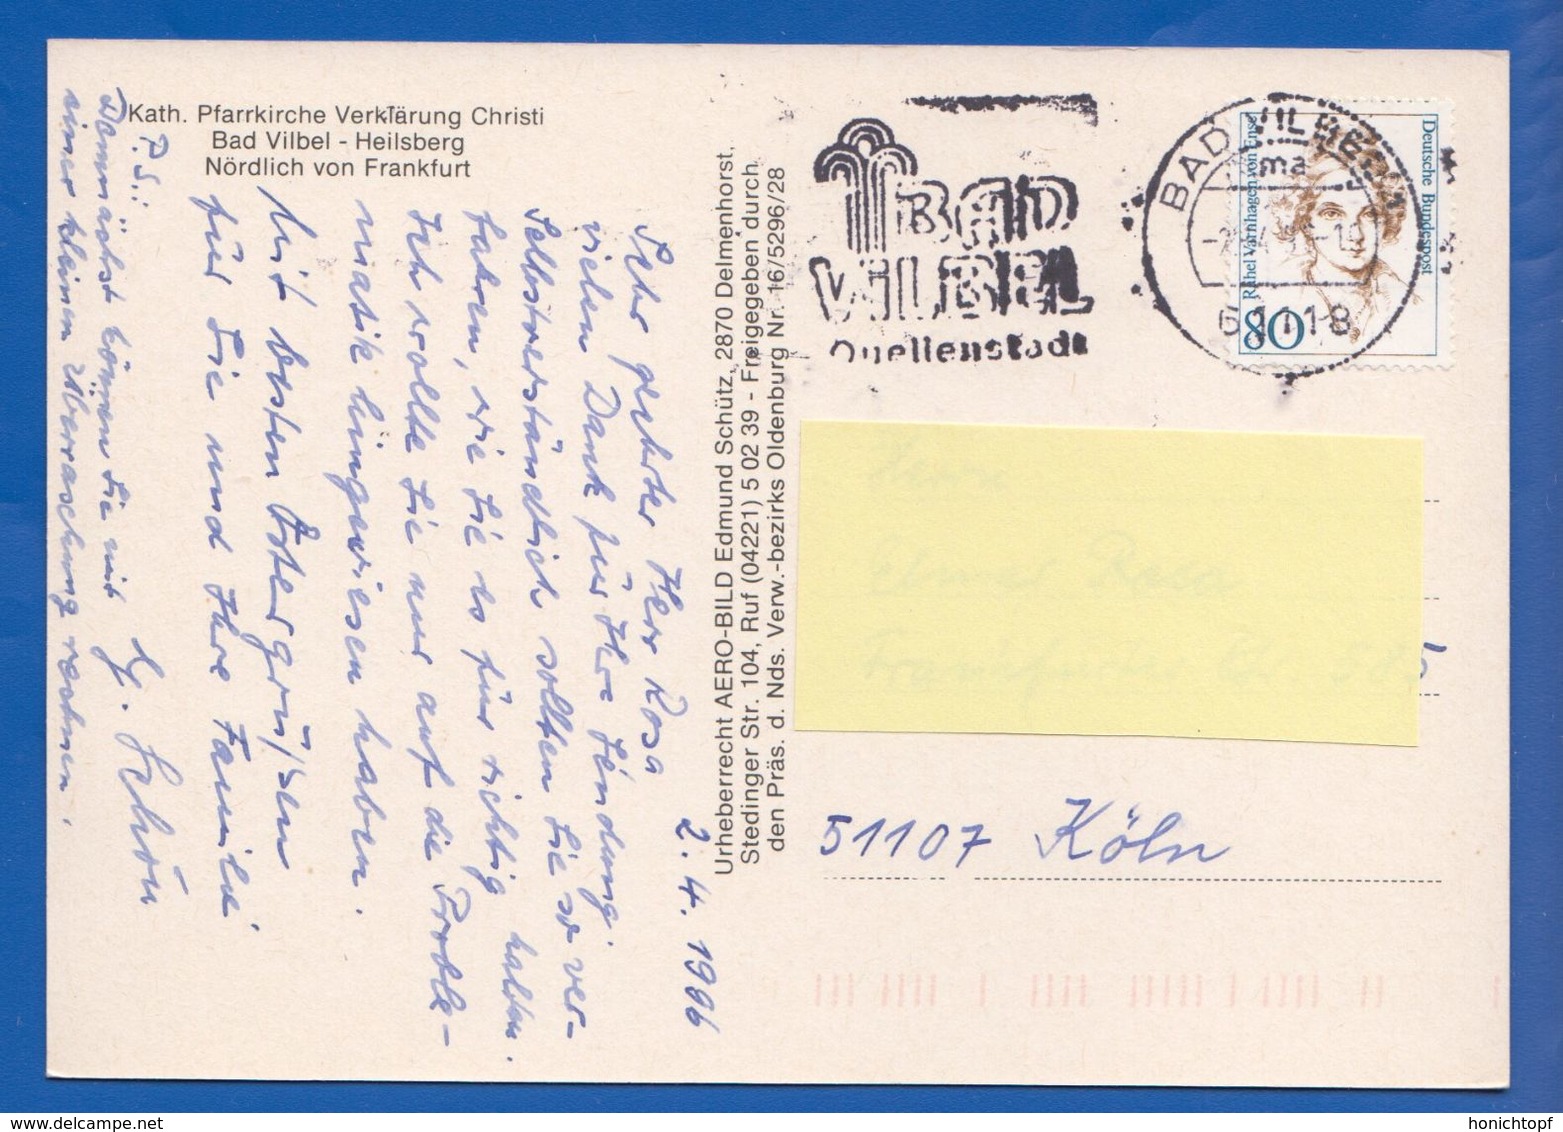 Kath. Pfarrkirche Verklärung Christi
Bad Vilbel - Heilsberg
Nördlich von Frankfurt
2. 4. 1996
Sehr geehrter Herr Rosa
vielen Dank für Ihre Sendung.
Selbstverständlich sollten Sie so ver-
fahren, wie Sie es für richtig halten.
Ich wollte Sie nur auf die Proble-
matik hingewiesen haben.
Mit besten Ostergrüßen
für Sie und Ihre Familie
P.S.:
Demnächst können Sie mit
einer kleinen Überraschung rechnen.
Urheberrecht AERO-BILD Edmund Schütz, 2870 Delmenhorst,
Stedinger Str. 104, Ruf (04221) 5 02 39 - Freigegeben durch
den Präs. d. Nds. Verw.-bezirks Oldenburg Nr. 16/5296/28
BAD
VILBEL
Quellenstadt
BAD VILBEL 1
ma
61118
Deutsche Bundespost
Rahel Varnhagen von Ense
80
Herrn
Rosa
51107 Köln
honichtopf